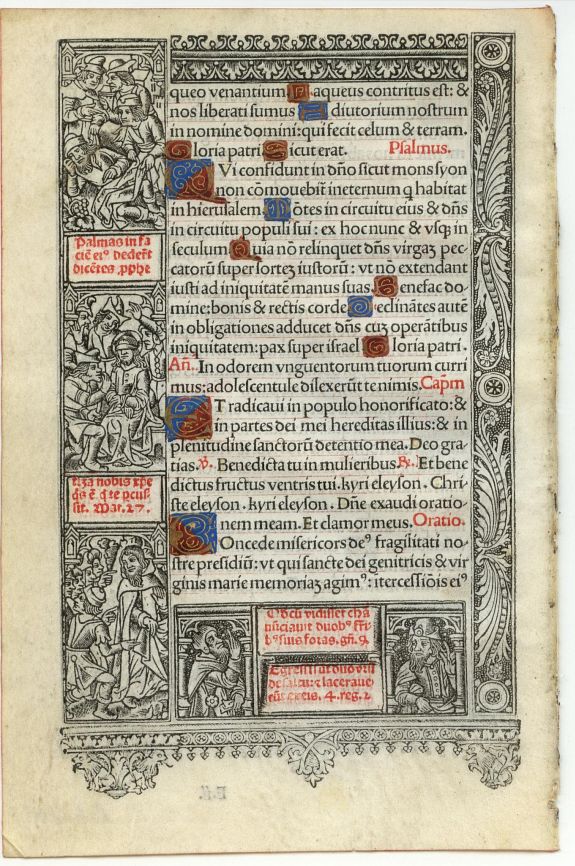 queo venantium. Laqueus contritus est: &
nos liberati sumus Adiutorium nostrum
in nomine domini: qui fecit celum & terram.
Gloria patri. Sicut erat. Psalmus.
QVi confidunt in dño sicut mons syon
non cõmouebit̃ ineternum q habitat
in hierusalem. Mõtes in circuitu eius & dñs
in circuitu populi sui: ex hoc nunc & vsq̃ in
seculum Quia nõ relinquet dñs virgaʒ pec
catorũ super sorteʒ iustorũ: vt nõ extendant
iusti ad iniquitatẽ manus suas. Benefac do
mine: bonis & rectis corde. Declinãtes autẽ
in obligationes adducet dñs cuʒ operãtibus
iniquitatem: pax super israel Gloria patri.
Añ. In odorem vnguentorum tuorum curri
mus: adolescentule dilexerũt te nimis. Capĩm
ET radicaui in populo honorificato: &
in partes dei mei hereditas illius: & in
plenitudine sanctorũ detentio mea. Deo gra
tias. ℣. Benedicta tu in mulieribus ℟. Et bene
dictus fructus ventris tui. kyri eleyson. Chri
ste eleyson. kyri eleyson. Dñe exaudi oratio
nem meam. Et clamor meus. Oratio.
COncede misericors deꝰ fragilitati no
stre presidiũ: vt qui sancte dei genitricis & vir
ginis marie memoriaʒ agimꝰ: itercessiõis eiꝰ
Palmas in fa
ciẽ eiꝰ dederũt
dicẽtes. ꝓphe
tiza nobis xp̃e
q̃s ẽ q̃ te ꝑcus
sit. Mat. 27.
Qđ cũ vidisset cha
nũciauit duobꝰ fr̃i
bꝰ suis foras. gñ. 9
Egressi sũt duo vrsi
de saltu: & lacerauе
rũt pueris. 4. reg. 2